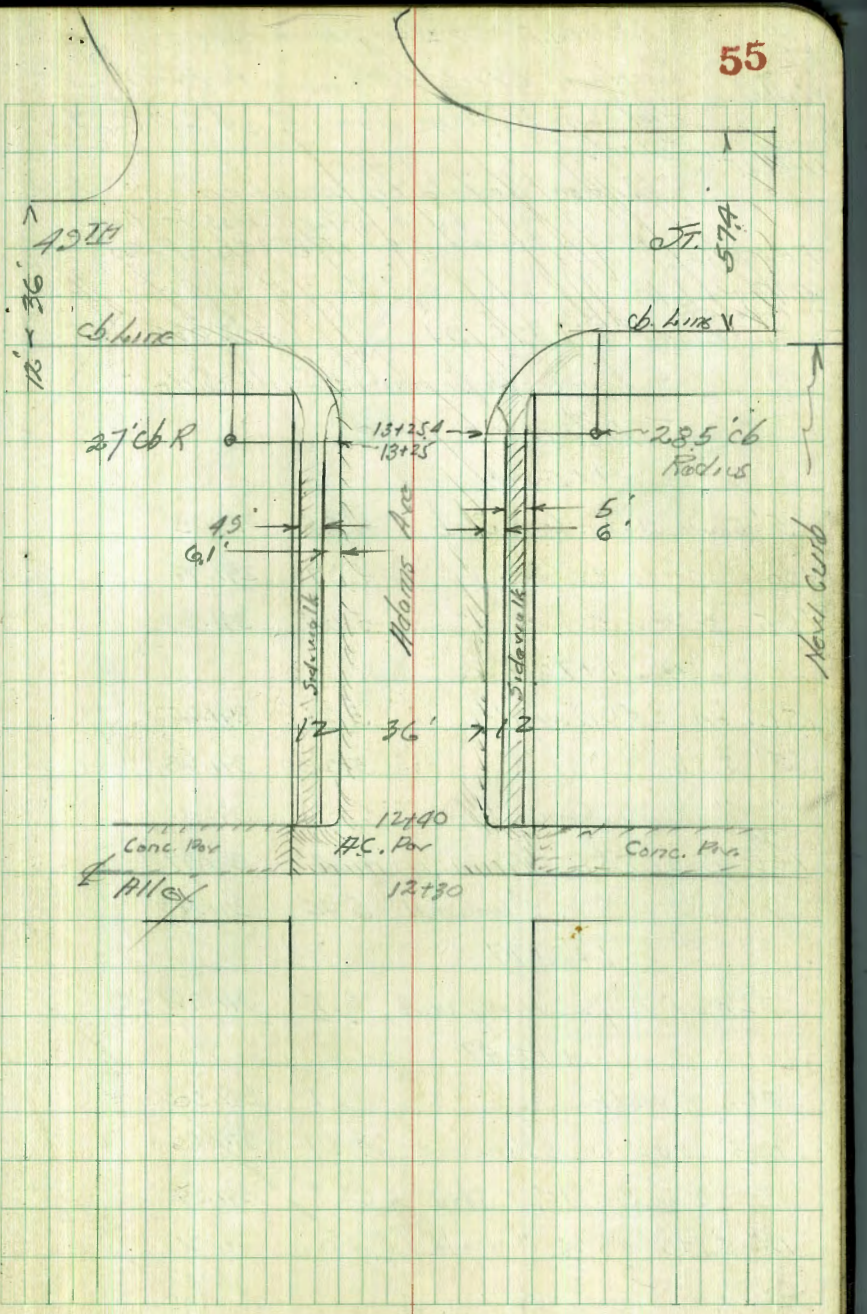 55
49TH
ST.
57.4'
12' < 36' >
cb. Line
cb. Line
27' cb R
13+25.4
13+25
28.5' cb
Radius
4.9'
6.1'
5'
6'
Adams Ave
New Curb
Sidewalk
Sidewalk
12
36'
12
12+40
Conc. Pav
A.C. Pav
Conc. Pav.
Alley
12+30